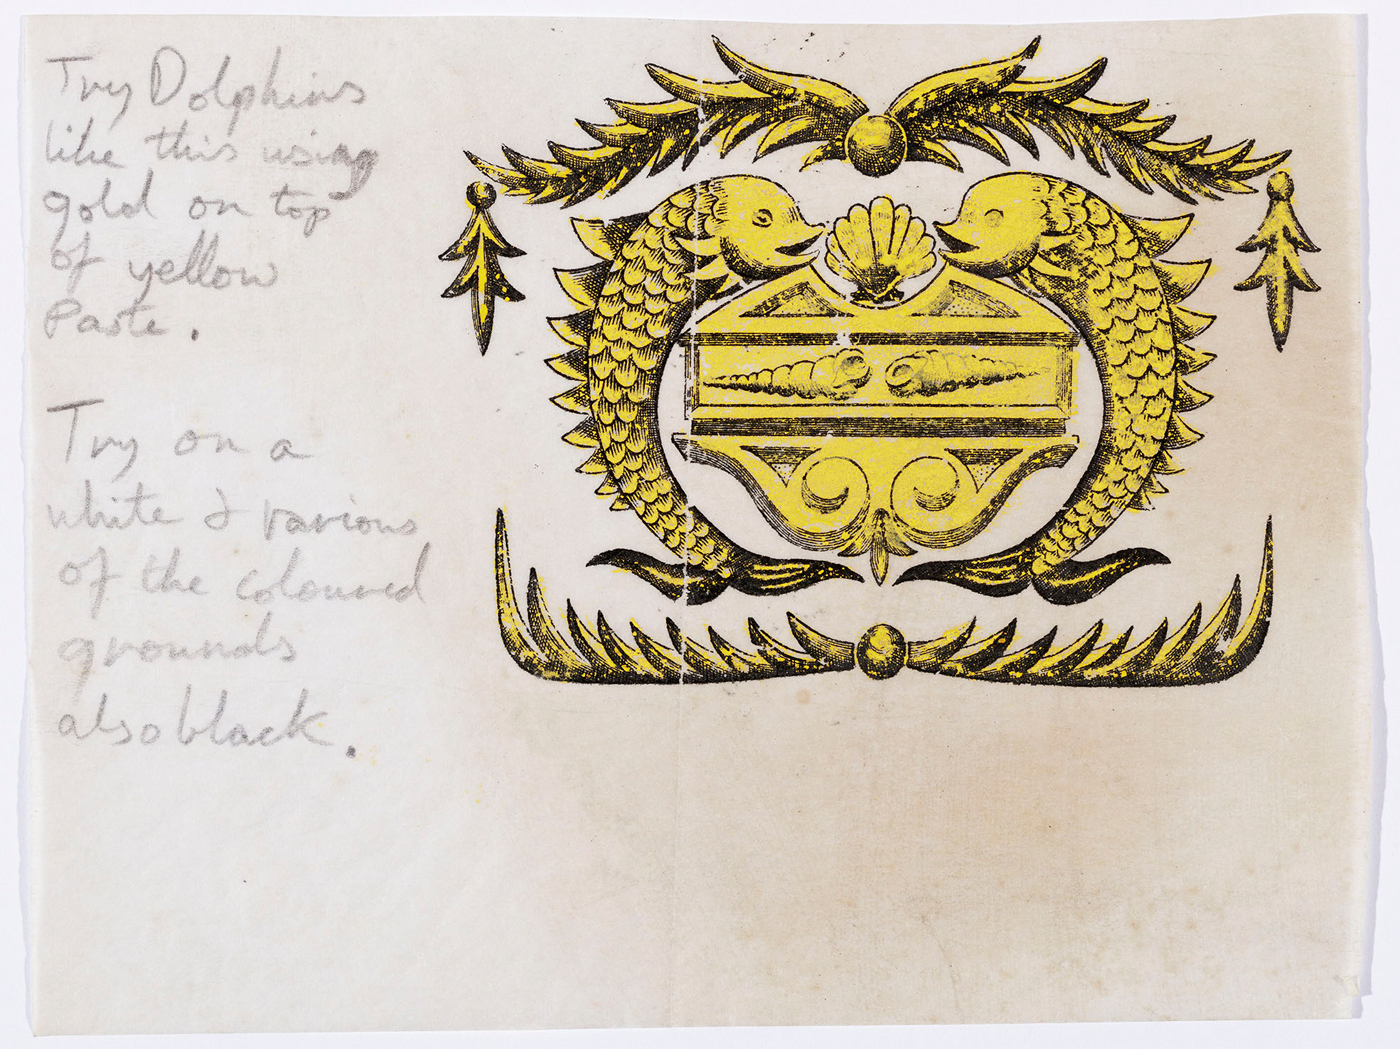 Try Dolphins
like this using
gold on top
of yellow
Paste.
Try on a
white & various
of the coloured
grounds
also black.